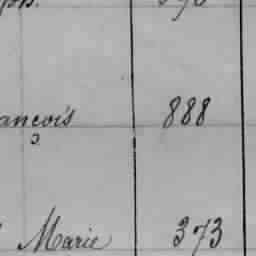 ancois 888
Marie 373